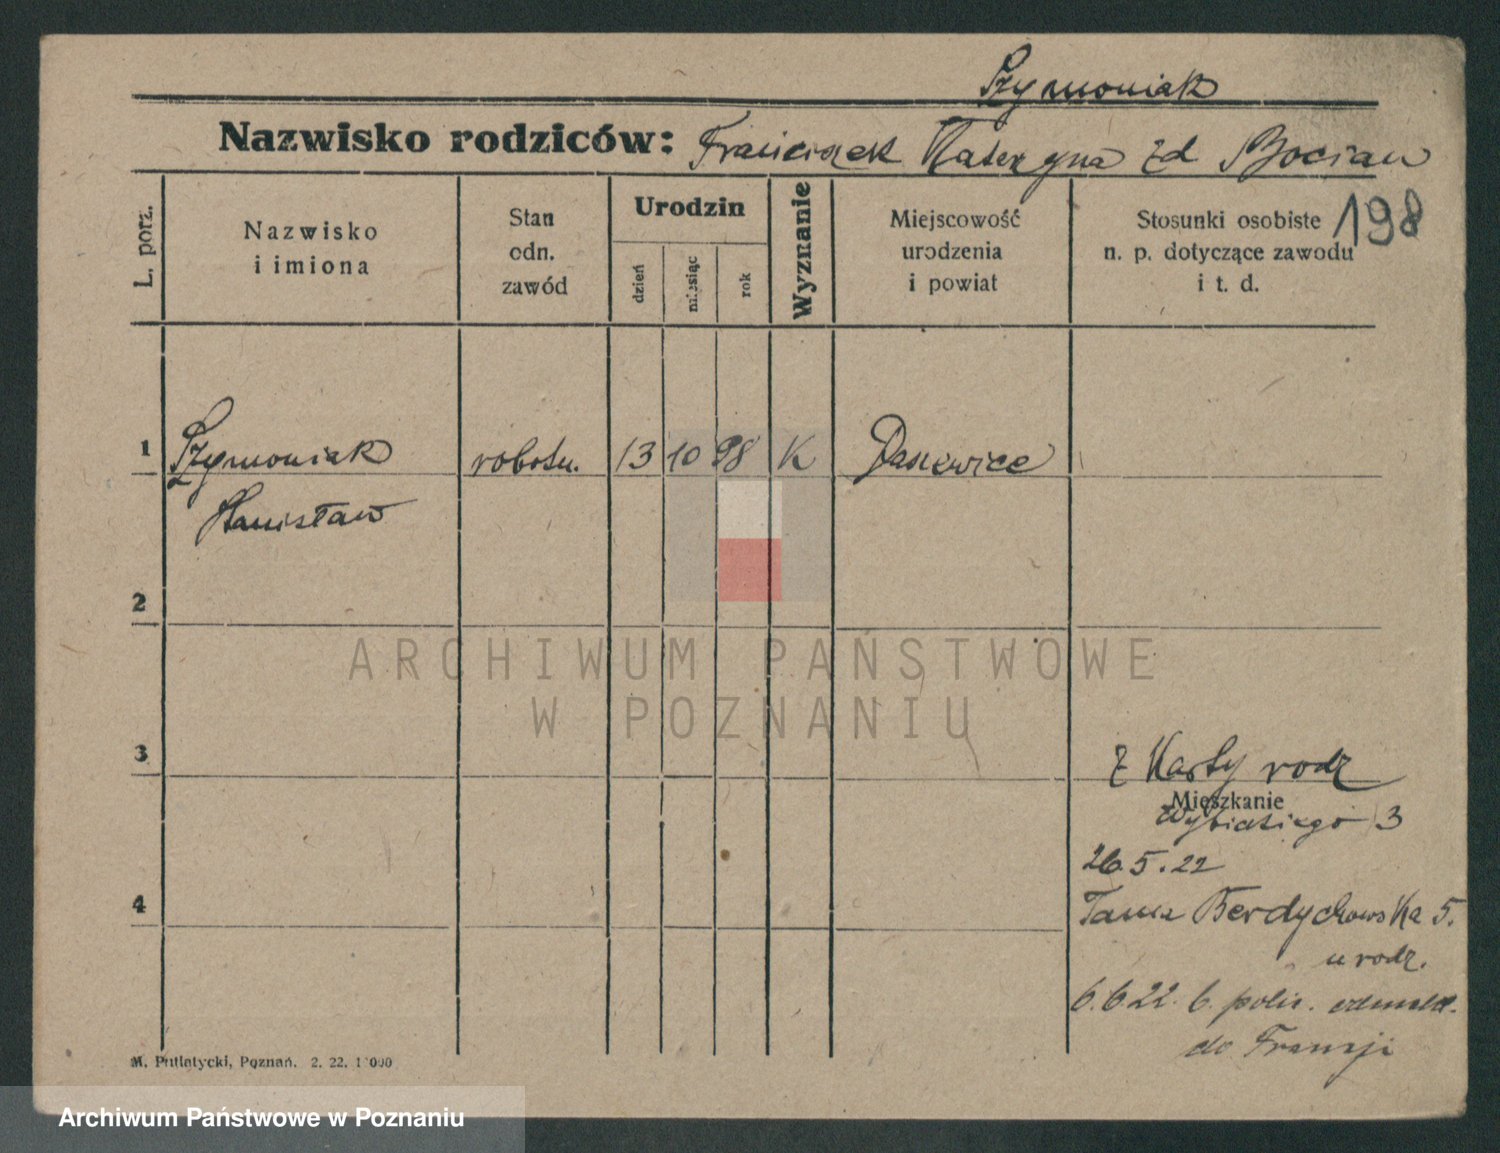 Szymoniak
Nazwisko rodziców: Franciszek Katarzyna zd Bocian
198
L. porz.
Nazwisko
i imiona
Stan
odn.
zawód
Urodzin
dzień
miesiąc
rok
Wyznanie
Miejscowość
urodzenia
i powiat
Stosunki osobiste
n. p. dotyczące zawodu
i t. d.
1 Szymoniak robotn. 13 10 98 K
Stanisław
2
ARCHIWUM PAŃSTWOWE
W POZNANIU
3
z Karty rodz
Mieszkanie
3
26.5.22
4
Tama Berdychowska 5.
u rodz.
6.6.22. b. polic.
do Francji
M. Putiatycki, Poznań. 2. 22.
Archiwum Państwowe w Poznaniu